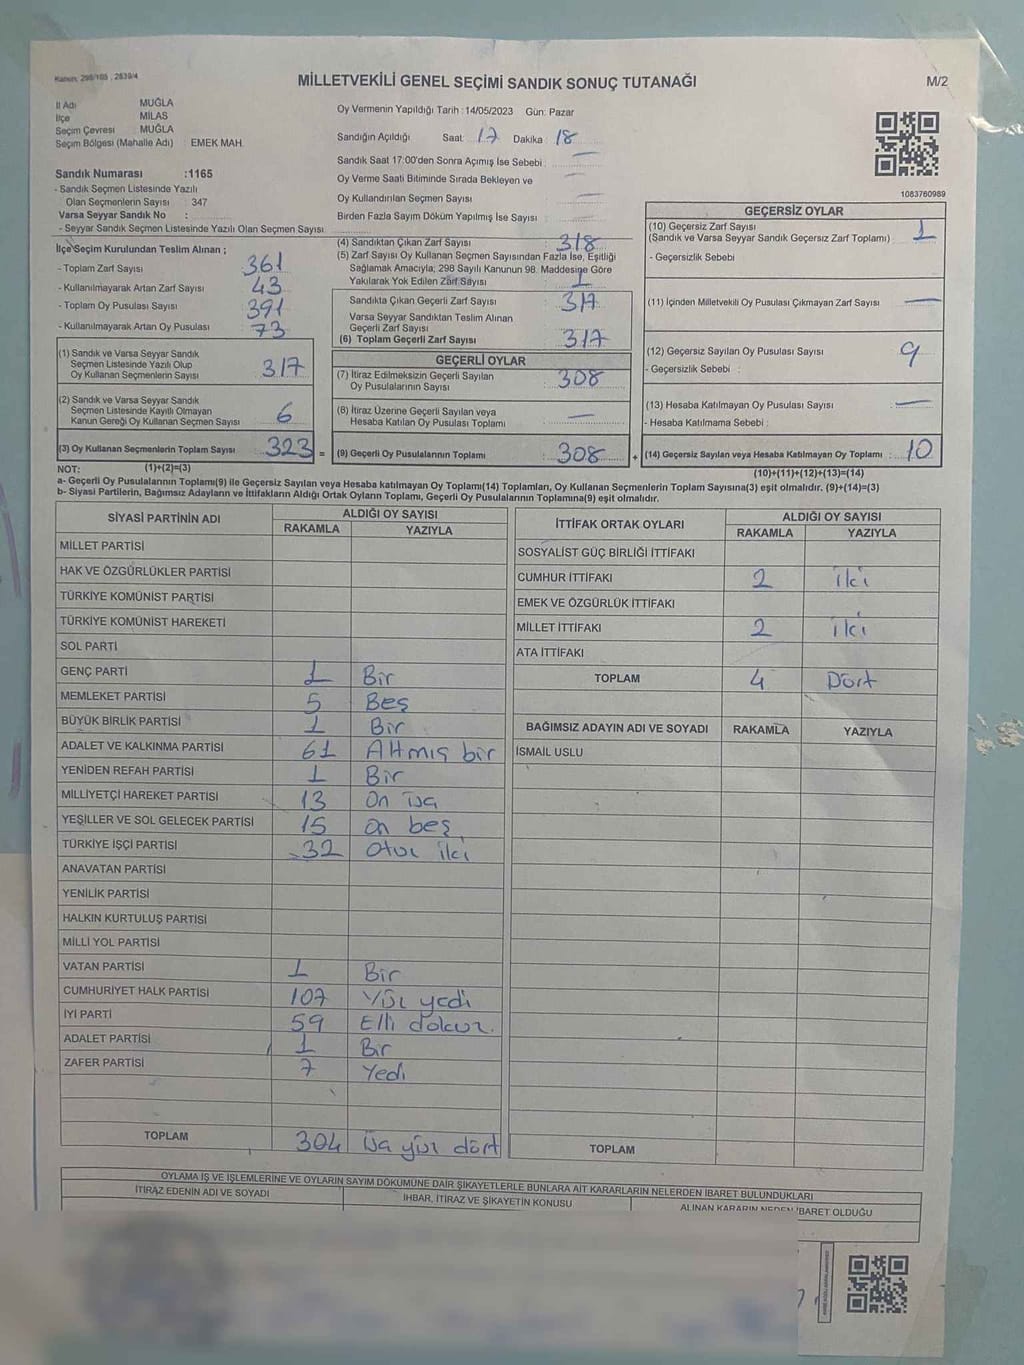 Kanun: 298/105 , 2839/4
MİLLETVEKİLİ GENEL SEÇİMİ SANDIK SONUÇ TUTANAĞI
M/2
İl Adı MUĞLA
İlçe MİLAS
Seçim Çevresi MUĞLA
Seçim Bölgesi (Mahalle Adı) EMEK MAH.
Oy Vermenin Yapıldığı Tarih : 14/05/2023 Gün: Pazar
Sandığın Açıldığı Saat: 17 Dakika : 18
Sandık Saat 17:00'den Sonra Açımış İse Sebebi : —
Oy Verme Saati Bitiminde Sırada Bekleyen ve
Oy Kullandırılan Seçmen Sayısı : —
Birden Fazla Sayım Döküm Yapılmış İse Sayısı : —
1083760989
Sandık Numarası :1165
- Sandık Seçmen Listesinde Yazılı
Olan Seçmenlerin Sayısı : 347
Varsa Seyyar Sandık No :
- Seyyar Sandık Seçmen Listesinde Yazılı Olan Seçmen Sayısı :
İlçe Seçim Kurulundan Teslim Alınan ;
- Toplam Zarf Sayısı : 361
- Kullanılmayarak Artan Zarf Sayısı : 43
- Toplam Oy Pusulası Sayısı : 391
- Kullanılmayarak Artan Oy Pusulası : 73
(1) Sandık ve Varsa Seyyar Sandık
Seçmen Listesinde Yazılı Olup
Oy Kullanan Seçmenlerin Sayısı : 317
(2) Sandık ve Varsa Seyyar Sandık
Seçmen Listesinde Kayıtlı Olmayan
Kanun Gereği Oy Kullanan Seçmen Sayısı : 6
(3) Oy Kullanan Seçmenlerin Toplam Sayısı : 323 =
(4) Sandıktan Çıkan Zarf Sayısı : 318
(5) Zarf Sayısı Oy Kullanan Seçmen Sayısından Fazla İse, Eşitliği
Sağlamak Amacıyla; 298 Sayılı Kanunun 98. Maddesine Göre
Yakılarak Yok Edilen Zarf Sayısı : 1
Sandıkta Çıkan Geçerli Zarf Sayısı : 317
Varsa Seyyar Sandıktan Teslim Alınan
Geçerli Zarf Sayısı :
(6) Toplam Geçerli Zarf Sayısı : 317
GEÇERLİ OYLAR
(7) İtiraz Edilmeksizin Geçerli Sayılan
Oy Pusulalarının Sayısı : 308
(8) İtiraz Üzerine Geçerli Sayılan veya
Hesaba Katılan Oy Pusulası Toplamı : —
(9) Geçerli Oy Pusulalarının Toplamı : 308 +
GEÇERSİZ OYLAR
(10) Geçersiz Zarf Sayısı : 1
(Sandık ve Varsa Seyyar Sandık Geçersiz Zarf Toplamı)
- Geçersizlik Sebebi :
(11) İçinden Milletvekili Oy Pusulası Çıkmayan Zarf Sayısı : —
(12) Geçersiz Sayılan Oy Pusulası Sayısı : 9
- Geçersizlik Sebebi :
(13) Hesaba Katılmayan Oy Pusulası Sayısı : —
- Hesaba Katılmama Sebebi :
(14) Geçersiz Sayılan veya Hesaba Katılmayan Oy Toplamı : 10
NOT: (1)+(2)=(3)
(10)+(11)+(12)+(13)=(14)
a- Geçerli Oy Pusulalarının Toplamı(9) ile Geçersiz Sayılan veya Hesaba katılmayan Oy Toplamı(14) Toplamları, Oy Kullanan Seçmenlerin Toplam Sayısına(3) eşit olmalıdır. (9)+(14)=(3)
b- Siyasi Partilerin, Bağımsız Adayların ve İttifakların Aldığı Ortak Oyların Toplamı, Geçerli Oy Pusulalarının Toplamına(9) eşit olmalıdır.
SİYASİ PARTİNİN ADI ALDIĞI OY SAYISI
RAKAMLA YAZIYLA
MİLLET PARTİSİ
HAK VE ÖZGÜRLÜKLER PARTİSİ
TÜRKİYE KOMÜNİST PARTİSİ
TÜRKİYE KOMÜNİST HAREKETİ
SOL PARTİ
GENÇ PARTİ 1 Bir
MEMLEKET PARTİSİ 5 Beş
BÜYÜK BİRLİK PARTİSİ 1 Bir
ADALET VE KALKINMA PARTİSİ 61 Altmış bir
YENİDEN REFAH PARTİSİ 1 Bir
MİLLİYETÇİ HAREKET PARTİSİ 13 On üç
YEŞİLLER VE SOL GELECEK PARTİSİ 15 On beş
TÜRKİYE İŞÇİ PARTİSİ 32 Otuz iki
ANAVATAN PARTİSİ
YENİLİK PARTİSİ
HALKIN KURTULUŞ PARTİSİ
MİLLİ YOL PARTİSİ
VATAN PARTİSİ 1 Bir
CUMHURİYET HALK PARTİSİ 107 Yüz yedi
İYİ PARTİ 59 Elli dokuz.
ADALET PARTİSİ 1 Bir
ZAFER PARTİSİ 7 Yedi
TOPLAM 304 Üç yüz dört
İTTİFAK ORTAK OYLARI ALDIĞI OY SAYISI
RAKAMLA YAZIYLA
SOSYALİST GÜÇ BİRLİĞİ İTTİFAKI
CUMHUR İTTİFAKI 2 iki
EMEK VE ÖZGÜRLÜK İTTİFAKI
MİLLET İTTİFAKI 2 iki
ATA İTTİFAKI
TOPLAM 4 Dört
BAĞIMSIZ ADAYIN ADI VE SOYADI RAKAMLA YAZIYLA
İSMAİL USLU
TOPLAM
OYLAMA İŞ VE İŞLEMLERİNE VE OYLARIN SAYIM DÖKÜMÜNE DAİR ŞİKAYETLERLE BUNLARA AİT KARARLARIN NELERDEN İBARET BULUNDUKLARI
İTİRAZ EDENİN ADI VE SOYADI İHBAR, İTİRAZ VE ŞİKAYETİN KONUSU ALINAN KARARIN NEDEN İBARET OLDUĞU